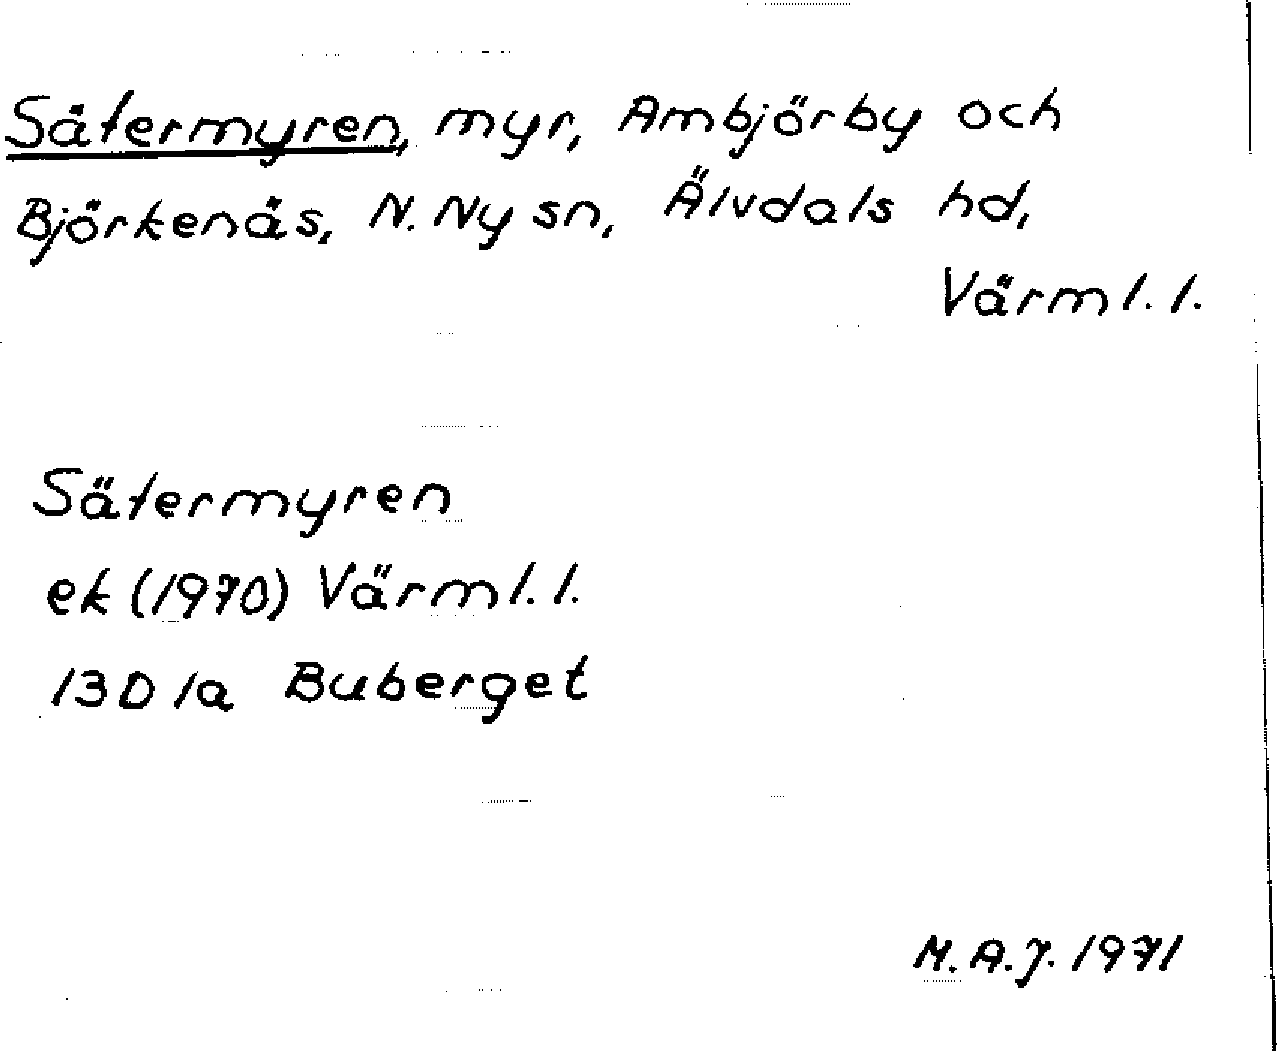 Sätermyren, myr, Ambjörby och
Björkenäs, N. Ny sn, Älvdals hd,
Värml. l.
Sätermyren
ek (1970) Värml. l.
13D 1a Buberget
M.A.J. 1971